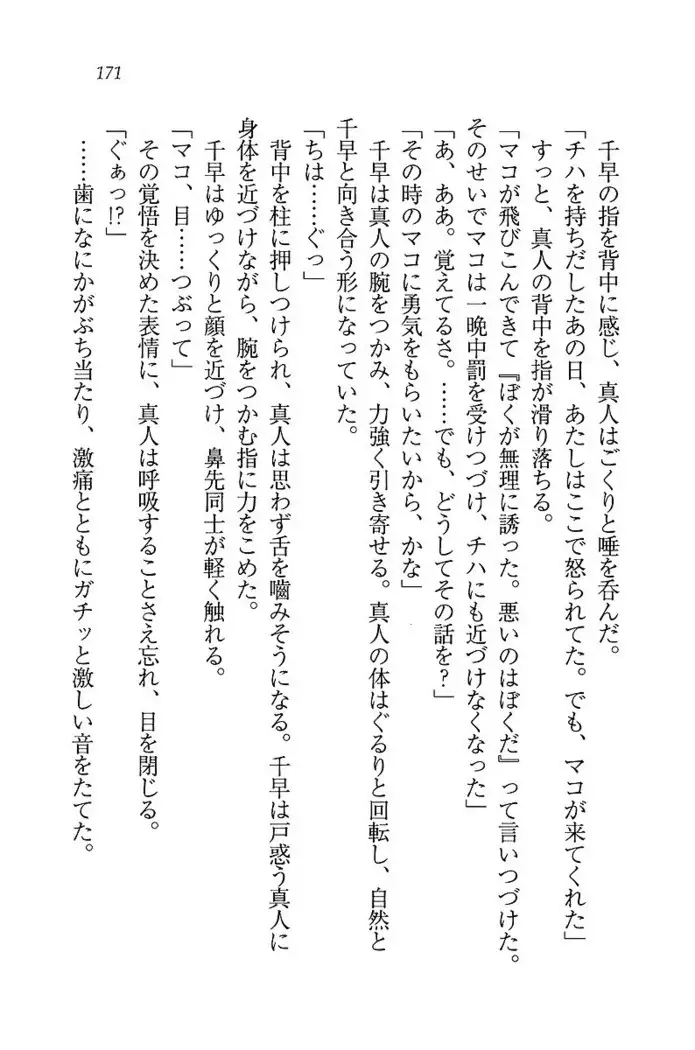 171
千早の指を背中に感じ、真人はごくりと唾を呑んだ。
「チハを持ちだしたあの日、あたしはここで怒られてた。でも、マコが来てくれた」
すっと、真人の背中を指が滑り落ちる。
「マコが飛びこんできて『ぼくが無理に誘った。悪いのはぼくだ』って言いつづけた。
そのせいでマコは一晩中罰を受けつづけ、チハにも近づけなくなった」
「あ、ああ。覚えてるさ。……でも、どうしてその話を？」
「その時のマコに勇気をもらいたいから、かな」
千早は真人の腕をつかみ、力強く引き寄せる。真人の体はぐるりと回転し、自然と
千早と向き合う形になっていた。
「ちは……ぐっ」
背中を柱に押しつけられ、真人は思わず舌を嚙みそうになる。千早は戸惑う真人に
身体を近づけながら、腕をつかむ指に力をこめた。
千早はゆっくりと顔を近づけ、鼻先同士が軽く触れる。
「マコ、目……つぶって」
その覚悟を決めた表情に、真人は呼吸することさえ忘れ、目を閉じる。
「ぐぁっ!?」
……歯になにかがぶち当たり、激痛とともにガチッと激しい音をたてた。